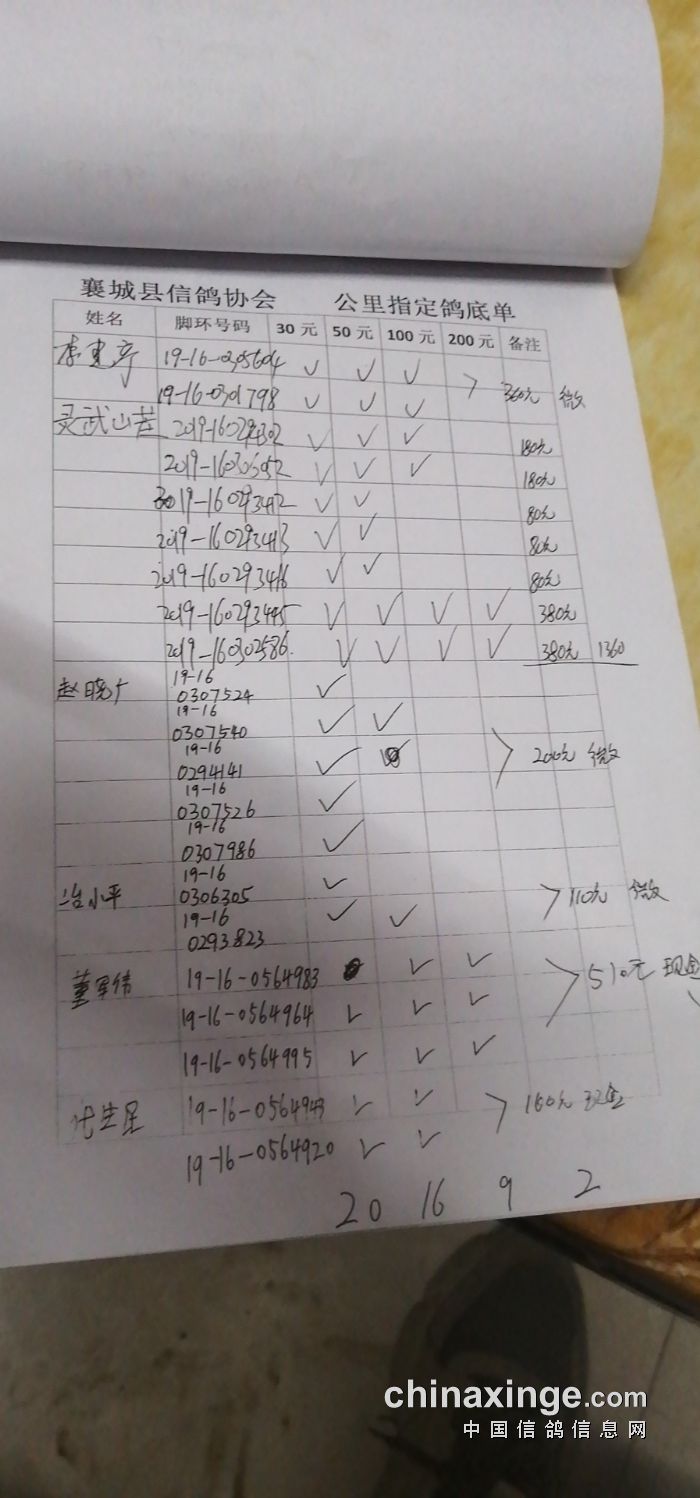 襄城县信鸽协会 公里指定鸽底单
姓名 脚环号码 30元 50元 100元 200元 备注
李建 19-16-0205604 √ √ √
19-16-0301798 √ √ √ 360元 微
灵武山 2019-160294302 √ √ √ 180元
2019-160306052 √ √ √ 180元
2019-160293412 √ √ 80元
2019-160293413 √ √ 80元
2019-160293416 √ √ 80元
2019-160293445 √ √ √ √ 380元
2019-160302586. √ √ √ √ 380元 1360
赵晓广 19-16
0307524 √
19-16
0307540 √ √
19-16
0294141 √ 200元 微
19-16
0307526 √
19-16
0307986 √
小平 19-16
0306305 √
19-16
0293823 √ √ 110元 微
董军伟 19-16-0564983 √ √ 510元 现金
19-16-0564964 √ √ √
19-16-0564995 √ √ √
代生星 19-16-0564943 √ √ 160元 现金
19-16-0564920 √ √
20 16 9 2
chinaxinge.com
中国信鸽信息网